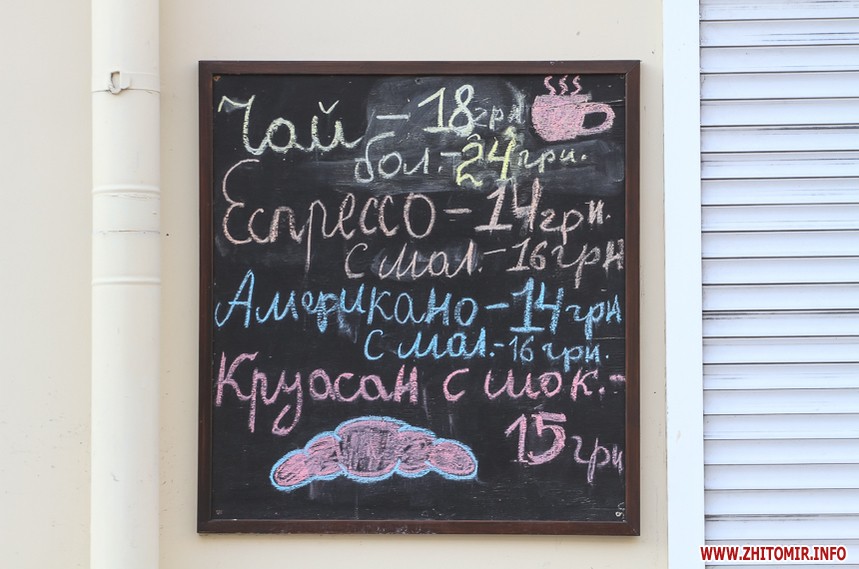 Чай - 18 грн
бол. - 24 грн.
Еспрессо - 14 грн.
с мол. - 16 грн
Американо - 14 грн
с мол. - 16 грн.
Круасан с шок. -
15 грн
WWW.ZHITOMIR.INFO